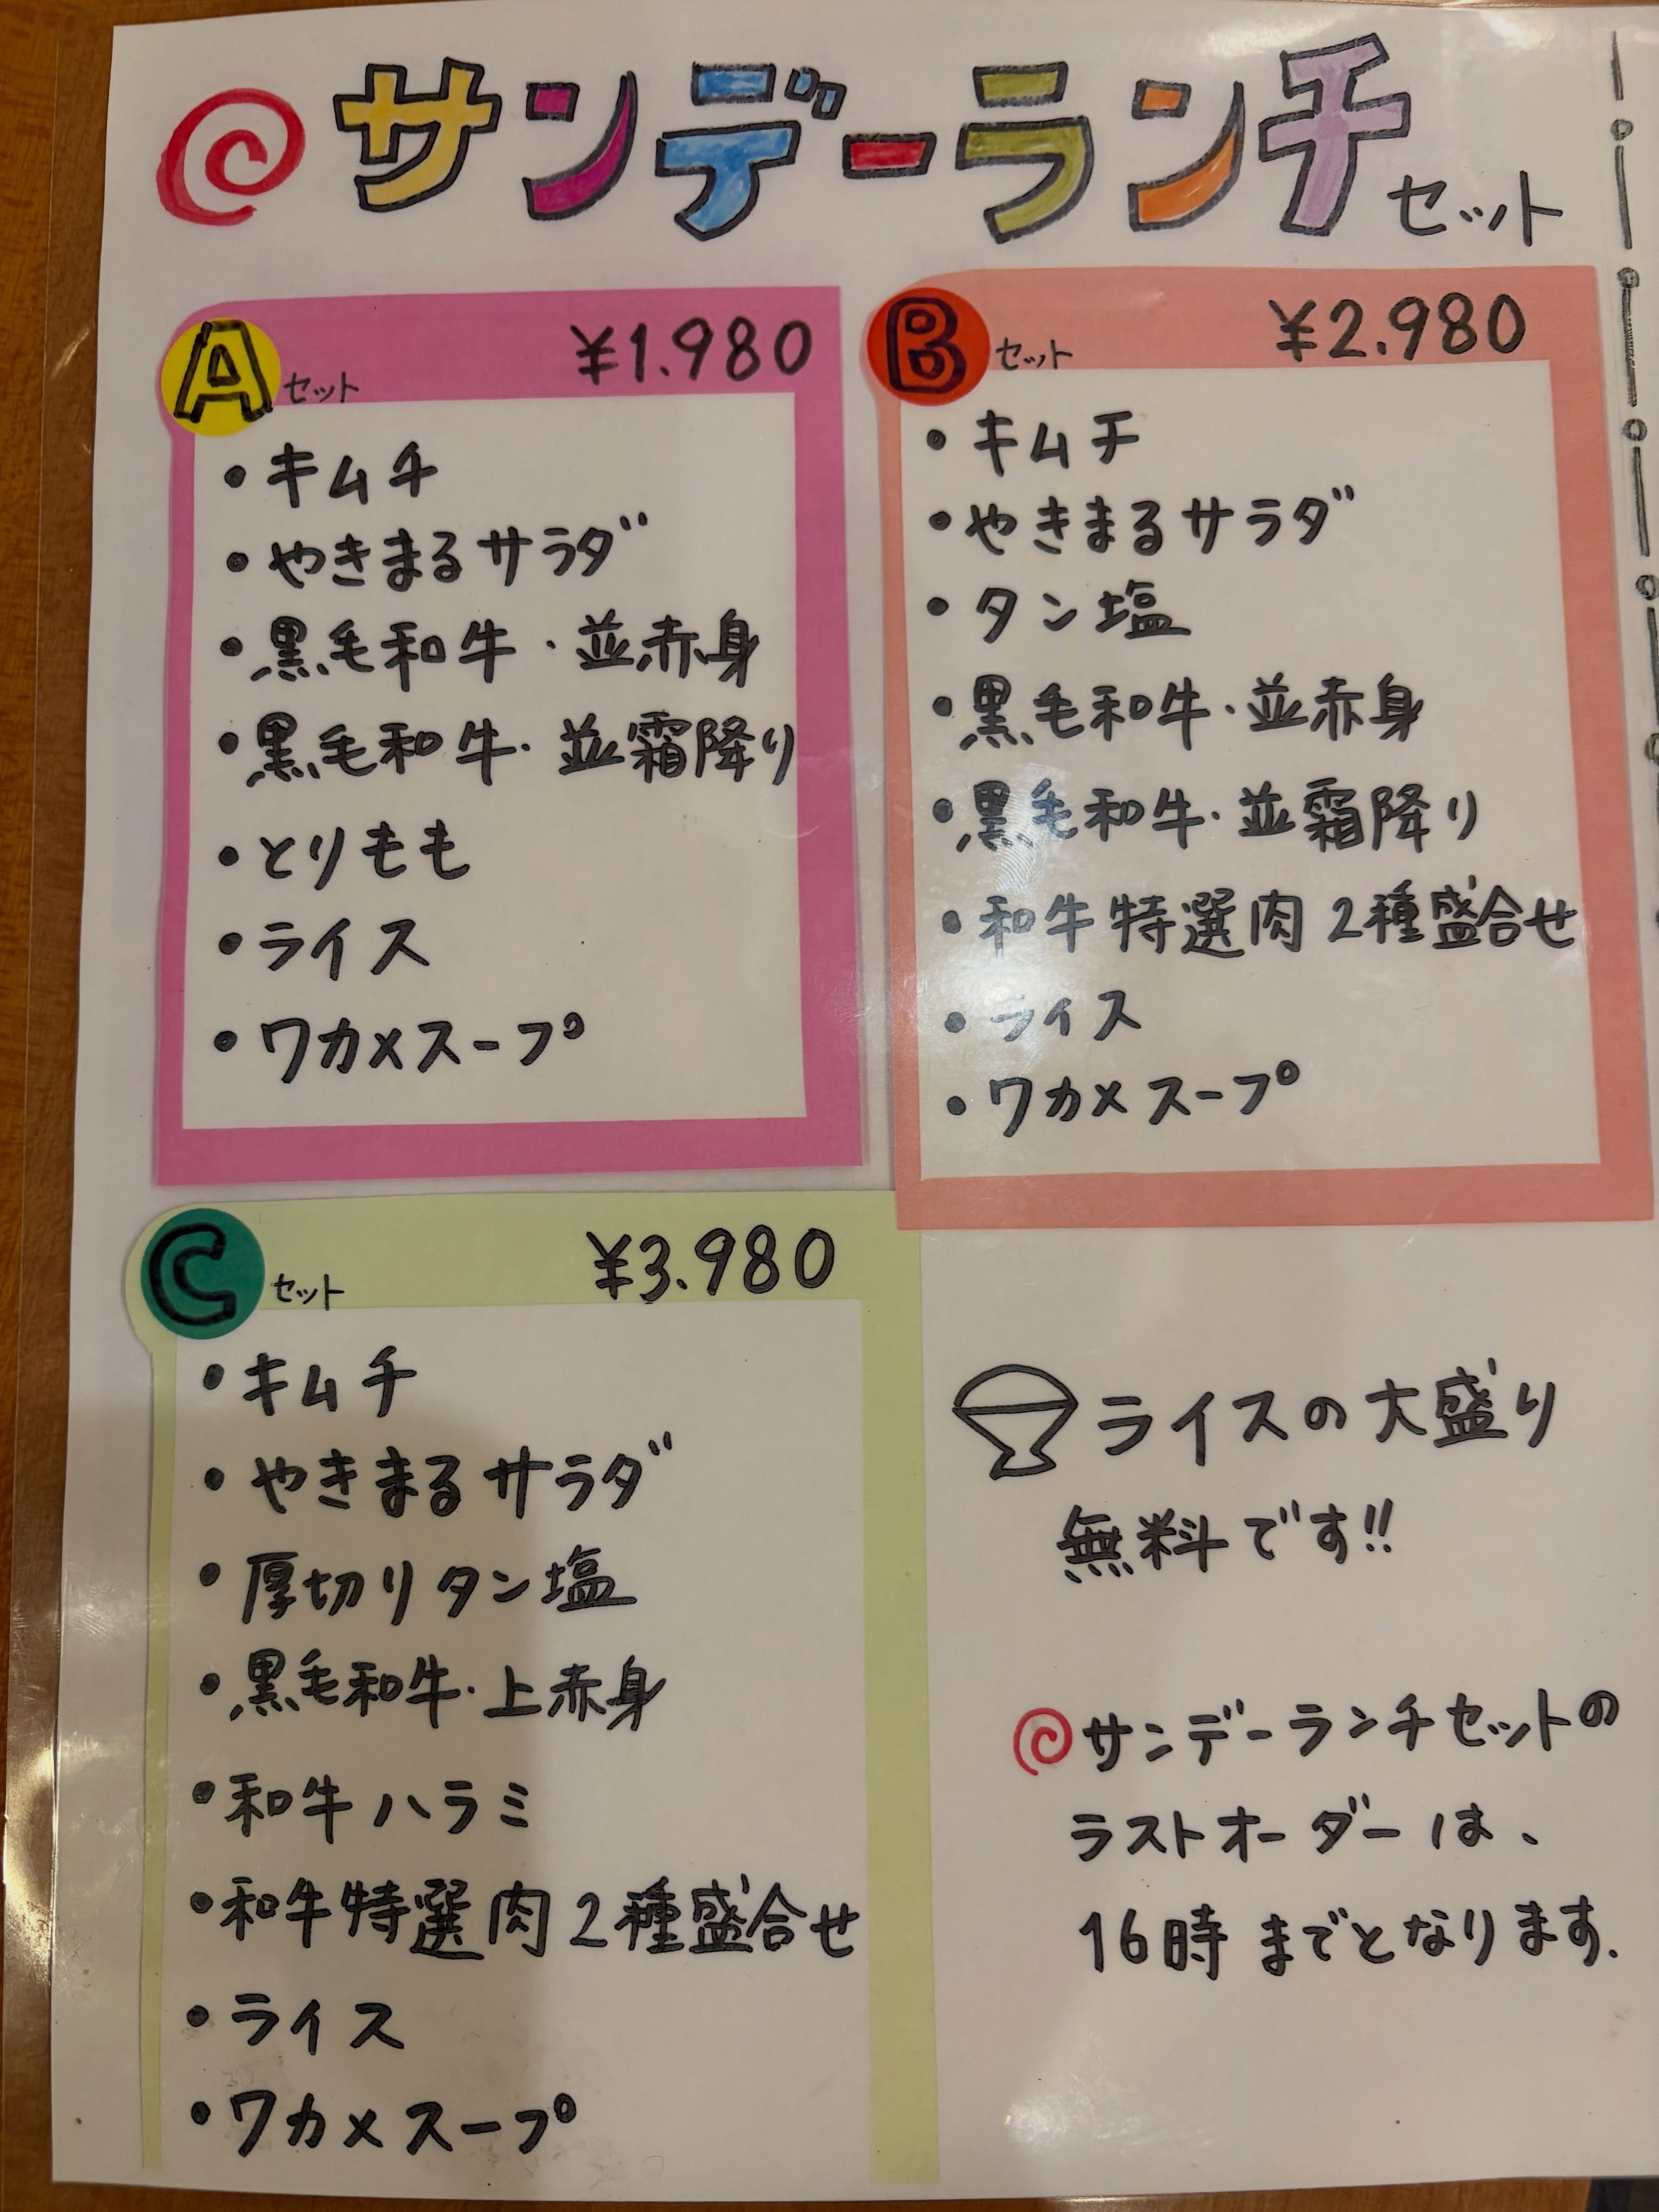 サンデーランチセット
Aセット ¥1.980
・キムチ
・やきまるサラダ
・黒毛和牛・並赤身
・黒毛和牛・並霜降り
・とりもも
・ライス
・ワカメスープ
Bセット ¥2.980
・キムチ
・やきまるサラダ
・タン塩
・黒毛和牛・並赤身
・黒毛和牛・並霜降り
・和牛特選肉2種盛合せ
・ライス
・ワカメスープ
Cセット ¥3.980
・キムチ
・やきまるサラダ
・厚切りタン塩
・黒毛和牛・上赤身
・和牛ハラミ
・和牛特選肉2種盛合せ
・ライス
・ワカメスープ
ライスの大盛り
無料です!!
サンデーランチセットの
ラストオーダーは、
16時までとなります.